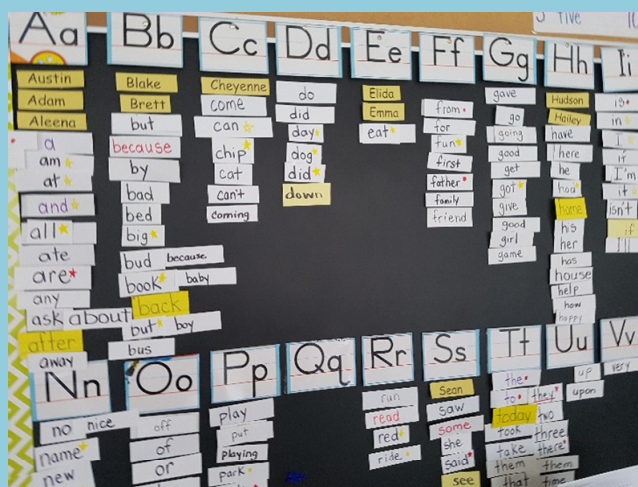 five
Aa
Austin
Adam
Aleena
a
am
at
and
all
ate
are
any
ask about
after
away
Bb
Blake
Brett
but
because
by
bad
bed
big
bud because
book baby
back
but boy
bus
Cc
Cheyenne
come
can
chip
cat
can't
coming
Dd
do
did
day
dog
did
down
Ee
Elida
Emma
eat
Ff
from
for
fun
first
father
family
friend
Gg
gave
go
going
good
get
got
give
good
girl
game
Hh
Hudson
Hailey
have
here
he
had
home
his
her
has
house
help
how
happy
Ii
is
in
I
I'm
it
isn't
if
I'll
Nn
no nice
name
new
Oo
off
of
or
Pp
play
put
playing
park
Qq
Rr
run
read
red
ride
Ss
Sean
saw
some
she
said
see
Tt
the
to they
today two
took three
take there
them them
that time
Uu
up
upon
Vv
very